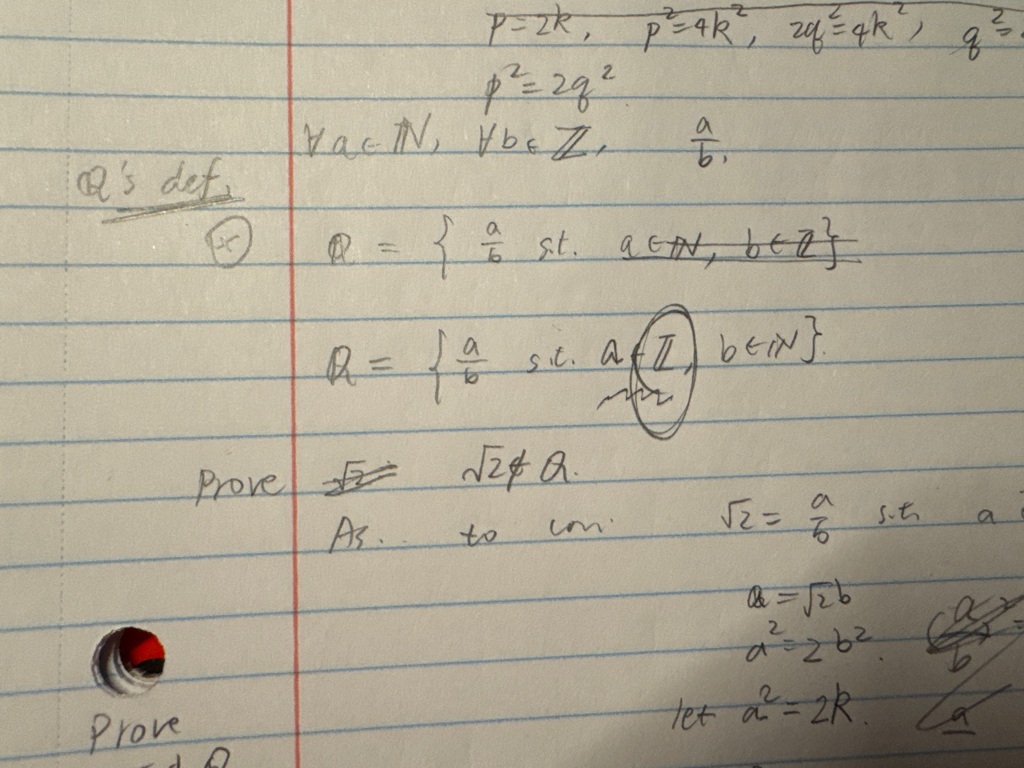 p=2k, p²=4k², 2q²=4k², q²=
p²=2q²
∀a∈ℕ, ∀b∈ℤ, a/b.
Q's def.
ℚ = { a/b s.t. a∈ℕ, b∈ℤ}
ℚ = { a/b s.t. a∈ℤ, b∈ℕ}.
Prove √2 √2∉Q.
As.. to con. √2 = a/b s.t. a
a = √2b
a²=2b². a b
let a²=2k. a
Prove
Q